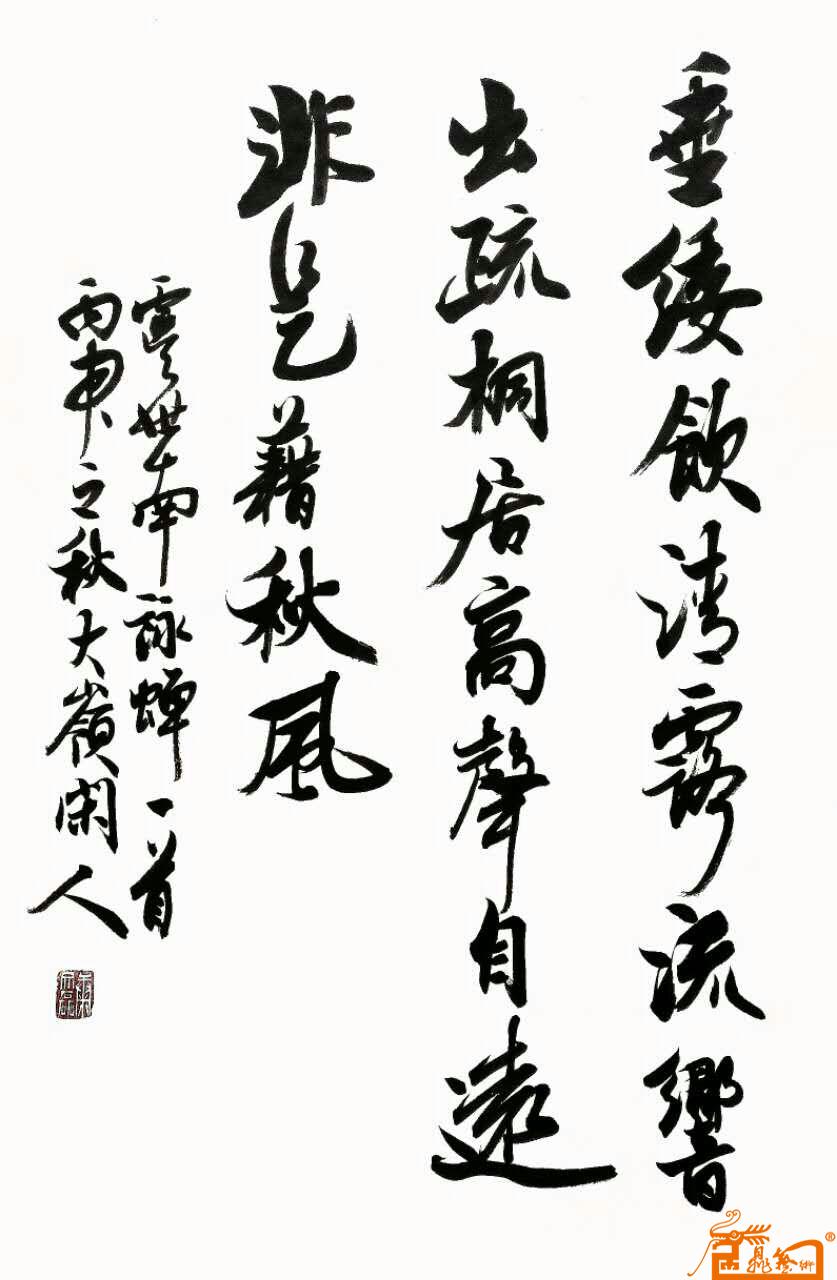 垂緌飲清露流響
出疏桐居高聲自遠
非是藉秋風
虞世南詠蟬一首
丙申之秋大嶺閑人